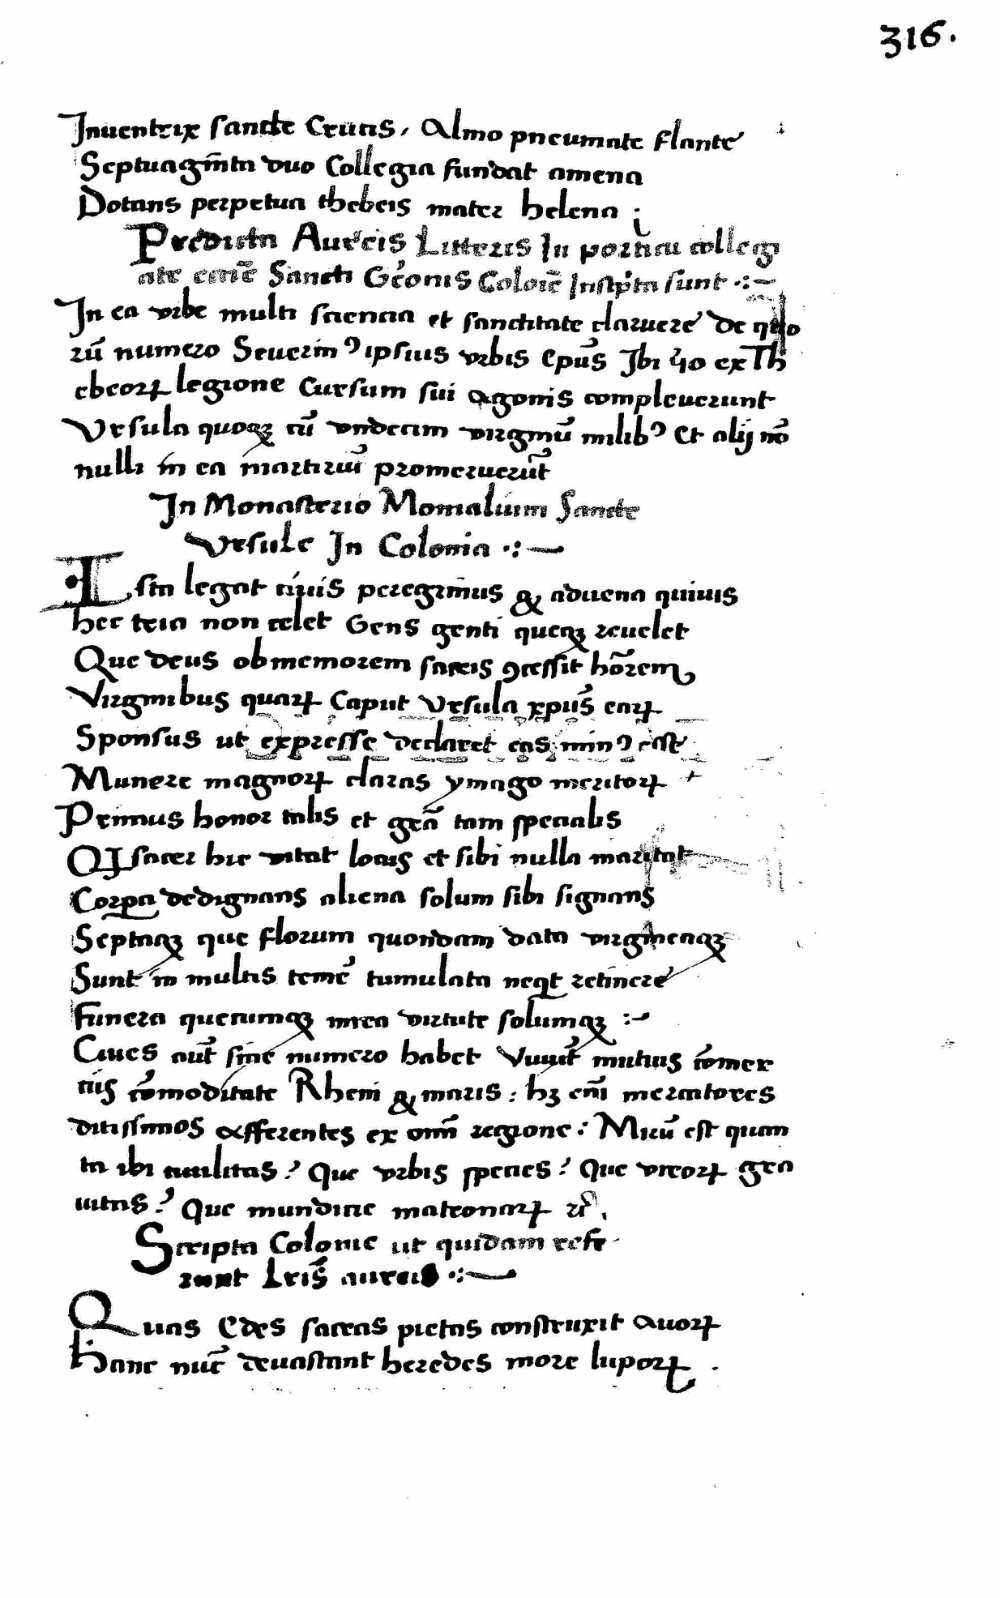 316.
Inuentrix sancte Crucis, Almo pneumate flante
Septuagīnta duo Collegia fundat amena
Dotans perpetua thebeis mater helena :
Predicta Aureis Litteris In porticu collegi
ate eccłie Sancti Gereonis Colonie Inscripta sunt ·:~
In ea vrbe multi sciencia et sanctitate claruere De quo
rū numero Seuerinꝰ ipsius vrbis Epūs Ibi ꝫ ex Th
ebeoꝝ legione Cursum sui agonis compleuerunt
Vrsula quoqꝫ cū vndecim virginū milibꝰ Et alij nō
nulli in ea martiriū promeruerūt
In Monasterio Monialium Sancte
Vrsule In Colonia ·:~
Ista legat ciuis peregrinus & aduena quiuis
hec tria non celet Gens genti queqꝫ reuelet
Que deus ob memorem sacris ꝯcessit honorem
Virginibus quaꝝ Caput Vrsula xpūs eaꝝ
Sponsus ut expresse declaret eas minꝰ esse
Munere magnoꝝ claras ymago meritoꝝ
Primus honor talis et grā tam specialis
Qꝫ sacer hic vitat locus et sibi nulla maritat
Corpa dedignans aliena solum sibi signans
Septaqꝫ que florum quondam data virgineaqꝫ
Sunt in multis temē tumulata neqt retinere
Funera quecumqꝫ mira virtute solumqꝫ :~
Ciues aut̄ sine numero habet Viuūt mutuis cōmer
ciis cōmoditate Rheni & maris : hꝫ eni mercatores
ditissimos afferentes ex omī regione : Mirū est quan
ta ibi ciuilitas? Que vrbis species? Que viroꝝ gra
uitas? Que mundicie matronaꝝ ꝛc̄.
Scripta Colonie ut quidam refe
runt Lris aureis ·:~
Quas Edes sacras pietas construxit Auoꝝ
Hanc nūc deuastant heredes more lupoꝝ .